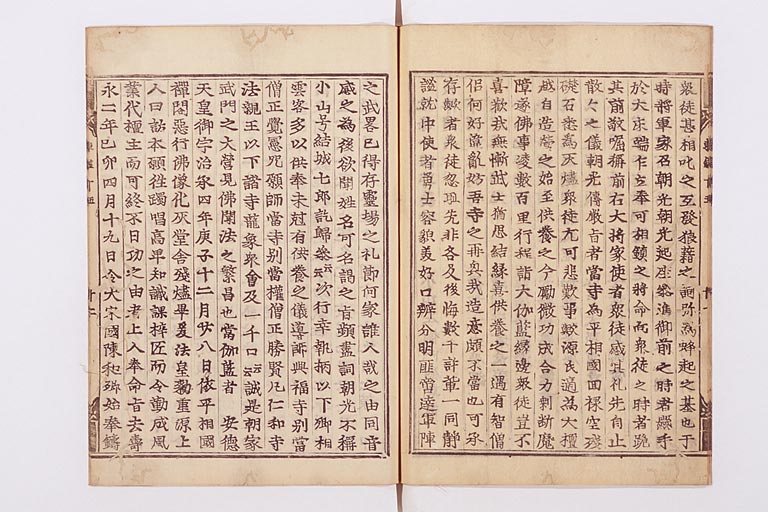 衆徒甚相叱之互發狼藉之詞弥為蜂起之基也于
時將軍家召朝光朝光起座參進御前之時者懸手
於大床端乍立奉可相鎮之將命向衆徒之時者跪
其前敬啒稱前右大將家使者衆徒感其礼先自止
散々之儀朝光傳嚴旨者當寺為平相國回禄空殘
礎石悉為灰燼衆徒尤可悲歎事歟源氏適為大檀
越自造營之始至供養之今勵微功成合力剩断魔
障遂佛事凌數百里行程詣大伽藍縁邊衆徒豈不
喜歓哉無慚武士猶思結縁嘉供養之一遇有智僧
侶何好違乱妨吾寺之再興哉造意頗不當也可承
存歟者衆徒忽耻先非各及後悔數千許輩一同靜
謐就中使者勇士容貌美好口辨分明匪啻達軍陣
之武畧已得存靈場之礼節何家誰人哉之由同音
感之為後欲聞姓名可名謁之旨頻盡詞朝光不稱
小山号結城七郎訖歸參云云次行幸執柄以下卿相
雲客多以供奉未尅有供養之儀導師興福寺別當
僧正覺憲咒願師當寺別當權僧正勝賢凡仁和寺
法親王以下諸寺龍象衆會及一千口云云誠是朝家
武門之大營見佛聞法之繁昌也當伽藍者　安德
天皇御宇治承四年庚子十二月廿八日依平相國
禪閤惡行佛像化灰堂舍殘燼爰法皇勅重源上
人曰訪本願往躅唱高卑知識課梓匠而令勤成風
業代檀主而可終不日功之由者上人奉命旨去壽
永二年己卯四月十九日令大宋國陳和卿始奉鑄